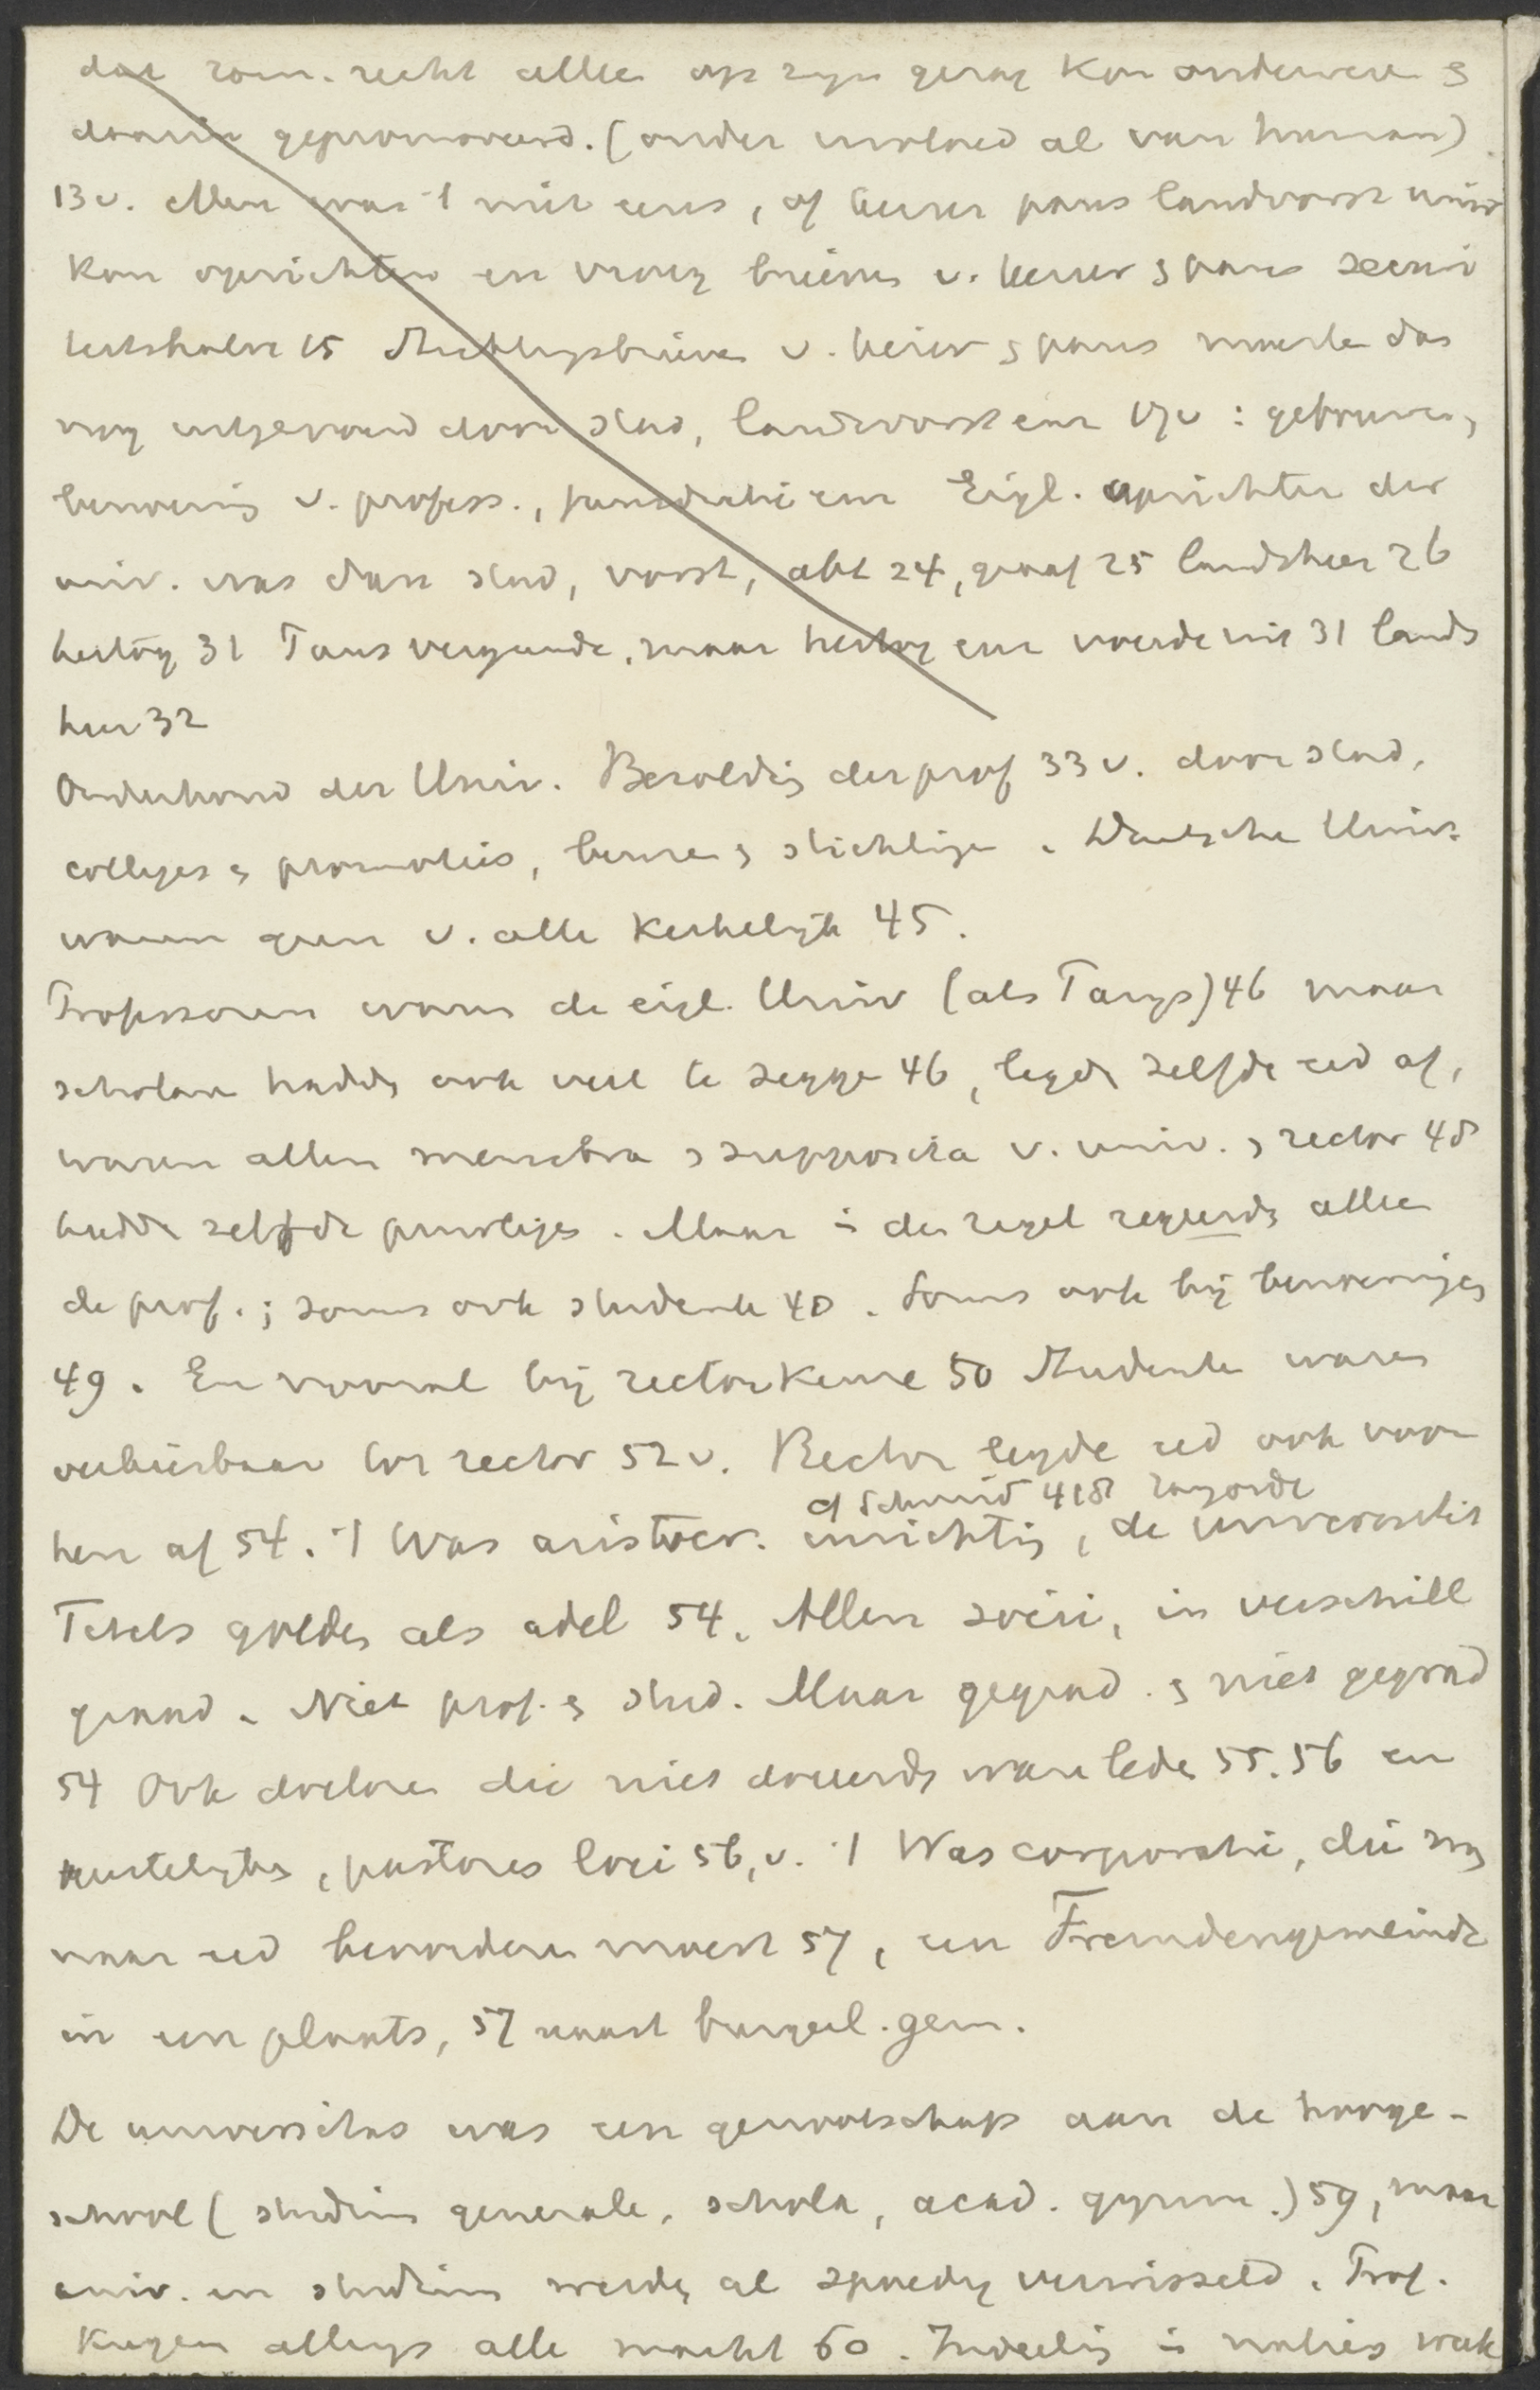 dat rom. recht alleen op zijn gezag kon onderwezen &
daarin gepromoveerd. (onder invloed al van human)
13v. Men was 't niet eens, of keizer paus landvorst univ
kon oprichten en vroeg brieven v. keizer & paus securi
teitshalve 15 Stichtingsbrieven v. keizer & paus moesten dan
nog uitgevoerd door stad, landvorst enz 17v: gebouwen,
benoeming v. profess., jurisdictie enz Eigl. oprichter der
univ. was dan stad, vorst, abt 24, graaf 25 landsheer 26
hertog 31 Paus vergunde, maar hertog enz voerde uit 31 lands
heer 32
Onderhoud der Univ. Bezoldig der prof 33v. door stad,
colleges & promoties, beurzen & stichtingen. Duitsche Univ.
waren geen v. alle Kerkelijk 45.
Professoren waren de eigl. Univ (als Parijs) 46 maar
scholaren hadden ook veel te zeggen 46, legden zelfde eed af,
waren allen membra & supposita v. univ. & rector 48
hadden zelfde privileges. Maar in den regel regeerden alleen
de prof.; soms ook studenten 48. Soms ook bij benoemingen
49. En vooral bij rectorkeuze 50 Studenten waren
verkiesbaar tot rector 52v. Rector legde eed ook voor
cf Schmid 418
hen af 54. 't Was aristocr. inrichting, de universiteit
Titels golden als adel 54. Allen socii, in verschill
graad. Niet prof. & stud. Maar gegrad. & niet gegrad
54 Ook doctoren die niet doceerden waren leden 55. 56 en
, pastores loci 56,v. 't Was corporatie, die men
naar eed bevorderen moest 57, een Fremdengemeinde
in een plaats, 57 naast burgerl. gem.
De universitas was een genootschap aan de hooge-
school (studium generale, schola, acad. gymn.) 59, maar
univ. en studium werden al spoedig verwisseld. Prof.
kregen allengs alle macht 60. Indeeling in naties